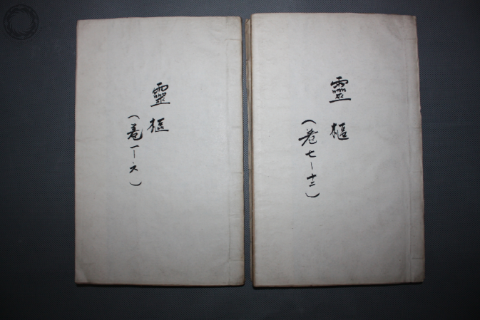 靈樞
(卷一–六)
靈樞
(卷七–十二)